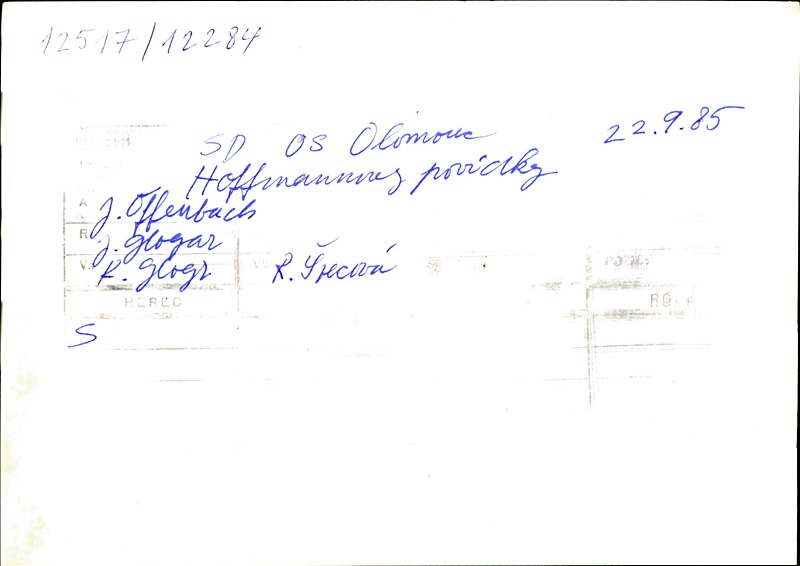 12517/12284
SD OS Olomouc 22.9.85
Hoffmannovy povídky
J. Offenbach
J. Glogar
K. Glogr R. Švecová
HEREC
S